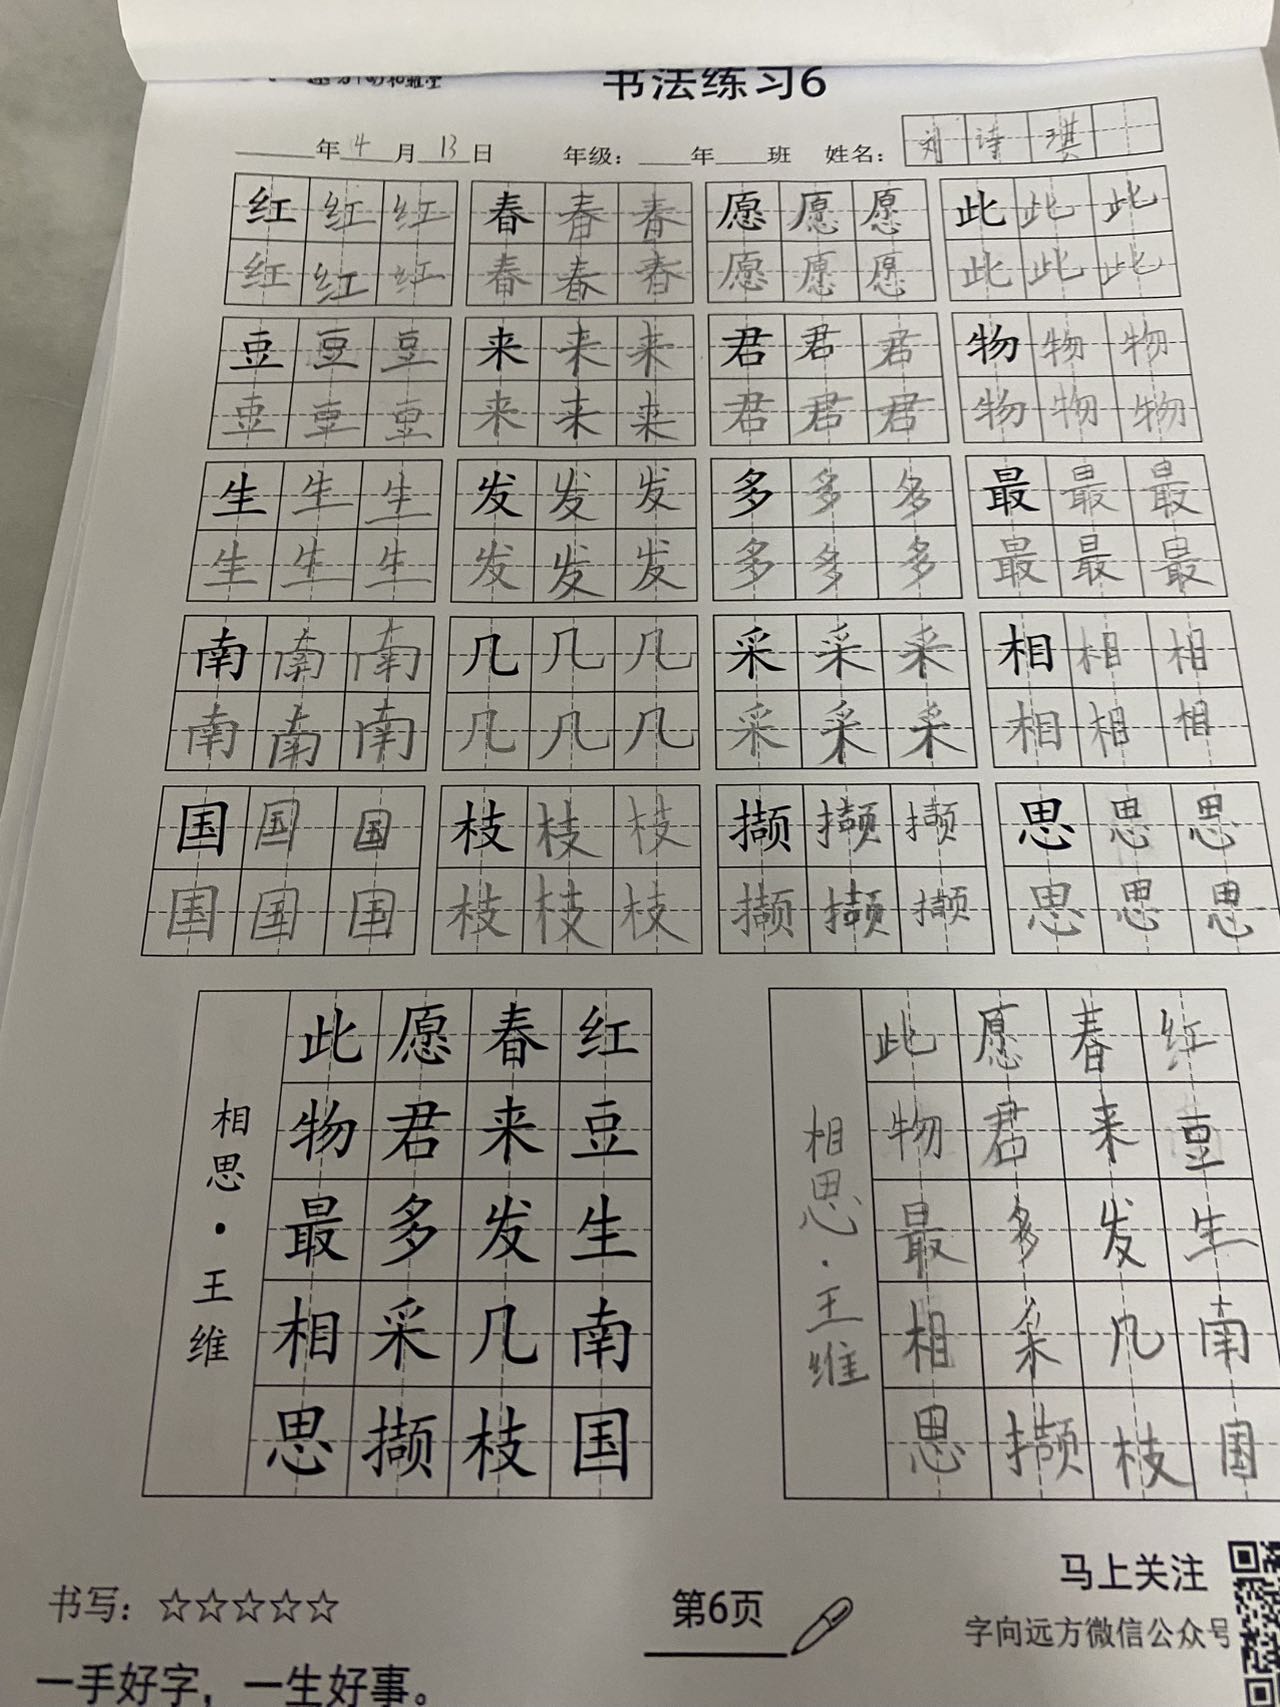 书法练习6
年4月13日 年级：年班 姓名：刘诗琪
红红红 春春春 愿愿愿 此此此
红红红 春春春 愿愿愿 此此此
豆豆豆 来来来 君君君 物物物
豆豆豆 来来来 君君君 物物物
生生生 发发发 多多多 最最最
生生生 发发发 多多多 最最最
南南南 几几几 采采采 相相相
南南南 几几几 采采采 相相相
国国国 枝枝枝 撷撷撷 思思思
国国国 枝枝枝 撷撷撷 思思思
红豆生南国
春来发几枝
愿君多采撷
此物最相思
相思·王维
红豆生南国
春来发几枝
愿君多采撷
此物最相思
相思·王维
书写：☆☆☆☆☆
第6页
马上关注
字向远方微信公众号
一手好字，一生好事。